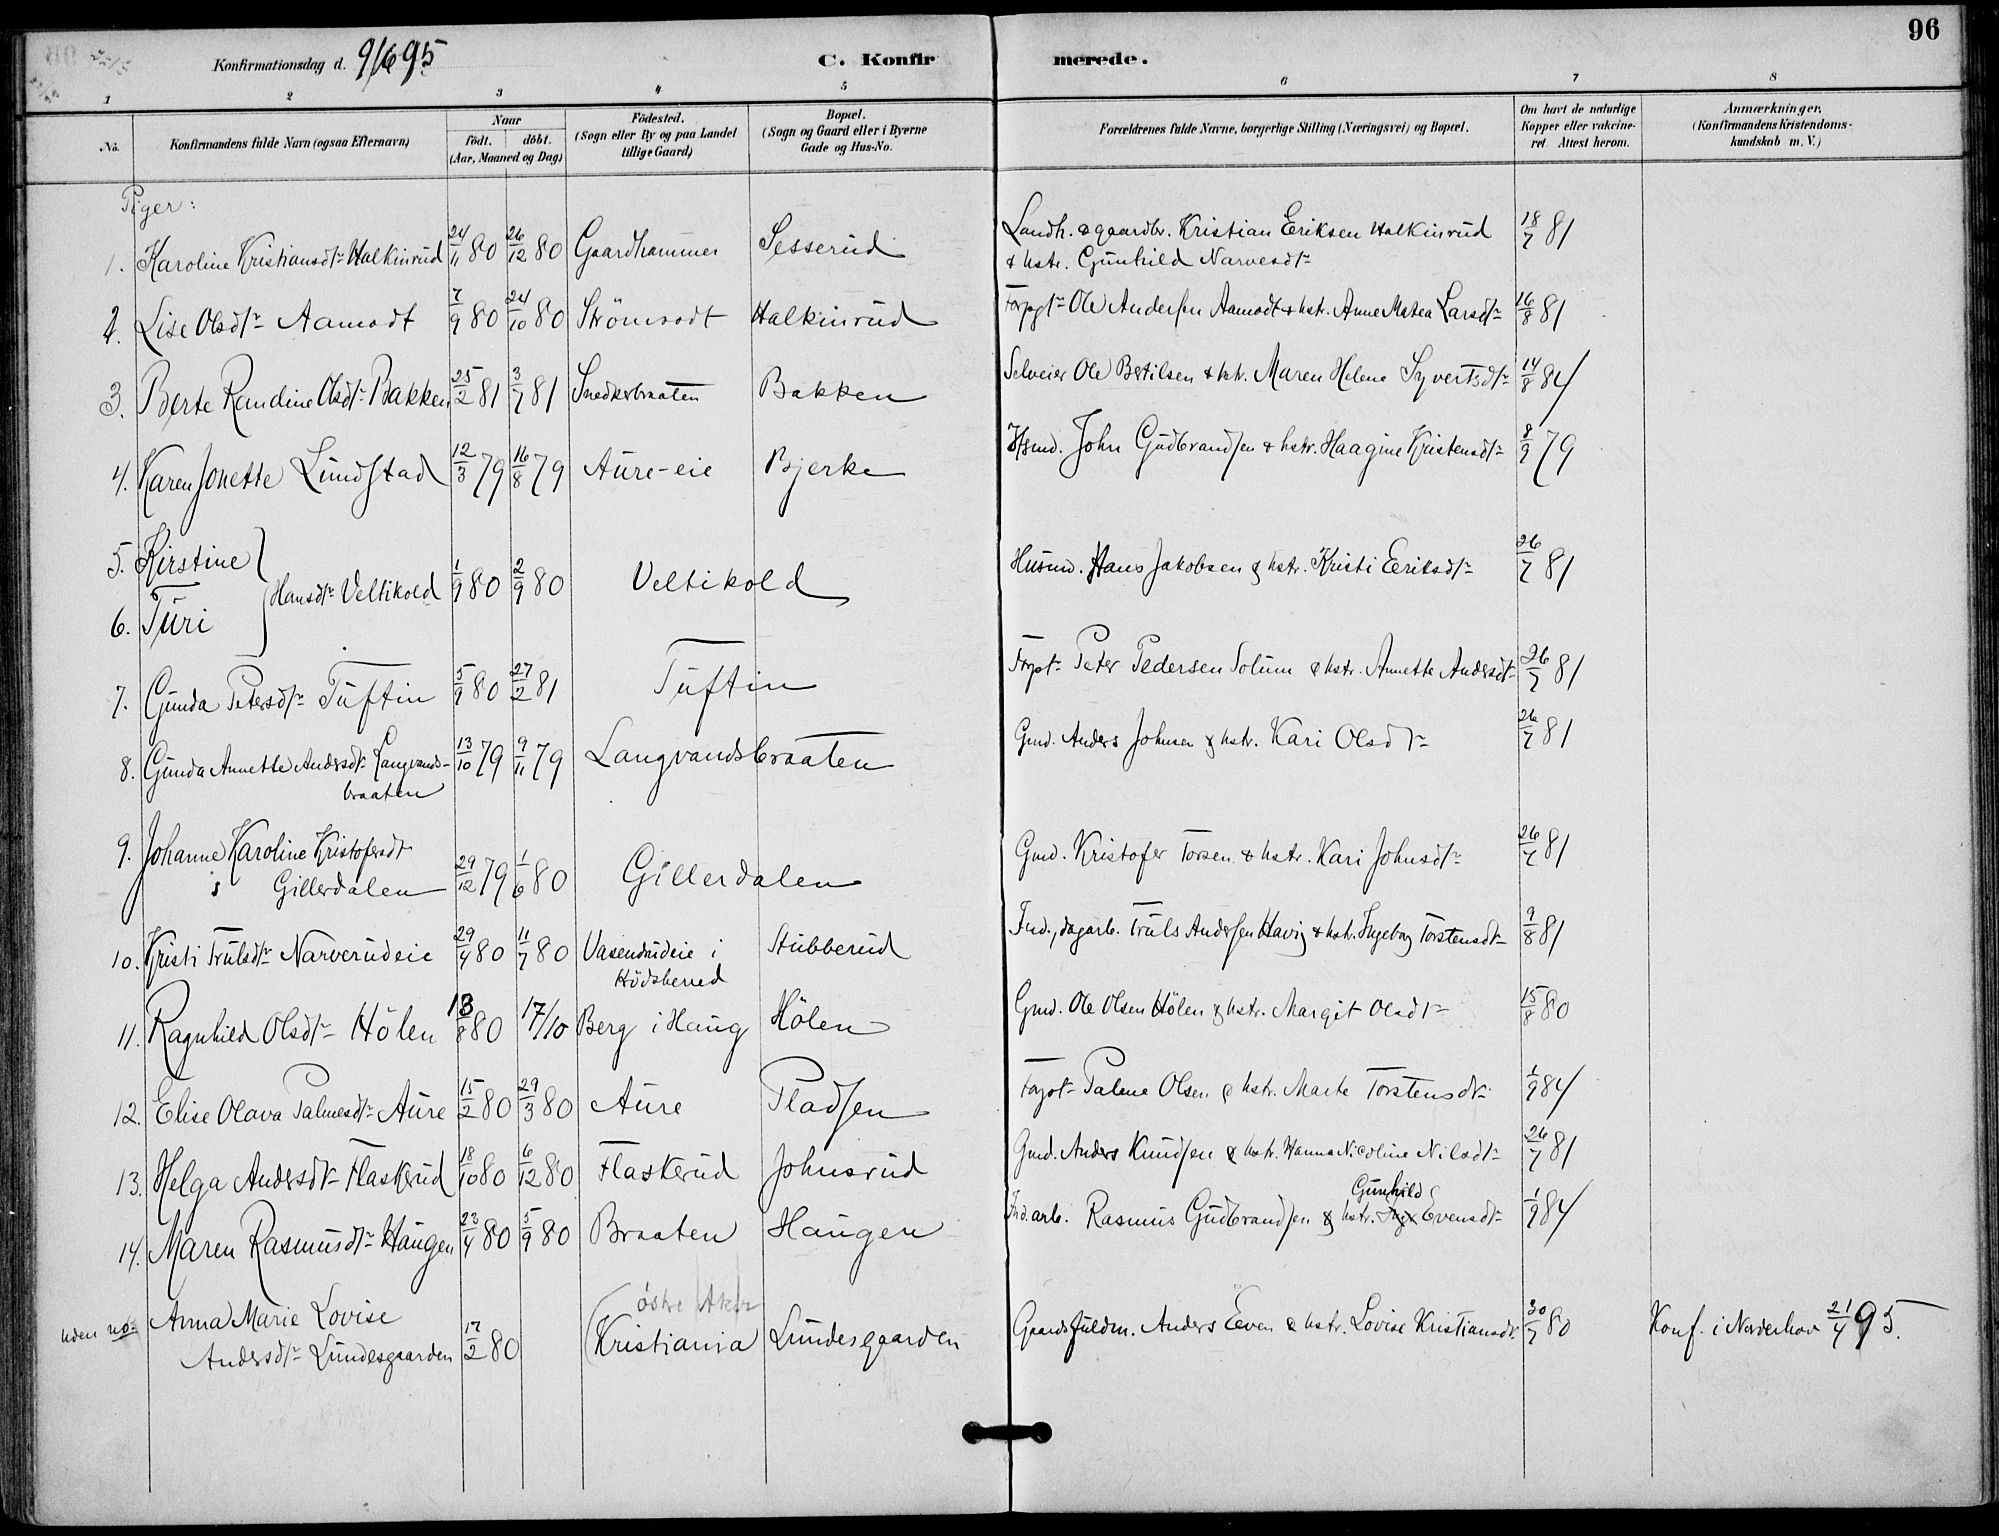 96
Konfirmationsdag d. 9/6 95.
C. Konfirmerede.
1 2 3 4 5 6 7 8
No.
Konfirmandens fulde Navn (ogsaa Efternavn)
Naar
födt. döbt.
(Aar, Maaned og Dag)
Födested.
(Sogn eller By og paa Landet
tillige Gaard)
Bopæl.
(Sogn og Gaard eller i Byerne
Gade og Hus-No.
Forældrenes fulde Navne, borgerlige Stilling (Næringsvei) og Bopæl.
Om havt de naturlige
Kopper eller vakcine-
ret Attest herom.
Anmærkninger.
(Konfirmandens Kristendoms-
kundskab m. V.)
Piger:
1. Karoline Kristiansdtr Halkinrud 24/11 80 26/12 80 Gaardhammer Sesserud Landh. & gaardbr. Kristian Eriksen Halkinrud 18/7 81
& hstr. Gunhild Narvesdtr
2. Lise Olsdtr Aamodt 7/9 80 24/10 80 Strömsodt Halkinrud Ole Andersen Aamodt & hstr. Anne Matea Larsdtr 16/8 81
3. Berte Randine Olsdtr Bakken 25/2 81 3/7 81 Snedkerbraaten Bakken Selveier Ole Bertilsen & hstr. Maren Helene Syvertsdtr 14/8 84
4. Karen Jonette Lundstad 12/3 79 16/8 79 Aure-eie Bjerke Hsmd. John Gudbrandsen & hstr. Haagine Kristensdtr 8/9 79
5. Kirstine
Hansdtr Veltikold 1/9 80 2/9 80 Veltikold Husmd. Hans Jakobsen & hstr. Kristi Eriksdtr 26/7 81
6. Turi
7. Gunda Petersdtr Tuftin 5/9 80 27/2 81 Tuftin Peter Pedersen Solum & hstr. Annette Andersdtr 26/7 81
8. Gunda Annette Andersdtr Langvands- 13/10 79 9/11 79 Langvandsbraaten Gmd. Anders Johnsen & hstr. Kari Olsdtr 26/7 81
braaten
9. Johanne Karoline Kristofersdtr
Gillerdalen 29/12 79 1/6 80 Gillerdalen Gmd. Kristofer Torsen & hstr. Kari Johnsdtr 26/7 81
10. Kristi Trulsdtr Narverudeie 29/4 80 11/7 80 Vasenrudeie i Stubberud Ind., dagarb. Truls Andersen Havig & hstr. Ingeborg Torstensdtr 9/8 81
Hödsherred
11. Ragnhild Olsdtr Hölen 13/8 80 17/10 Berg i Haug Hölen Gmd. Ole Olsen Hölen & hstr. Margit Olsdtr 15/8 80
12. Elise Olava Palmesdtr Aure 15/2 80 29/3 80 Aure Pladsen Palme Olsen & hstr. Marte Torstensdtr 1/9 84
13. Helga Andersdtr Flaskerud 18/10 80 6/12 80 Flaskerud Johnsrud Gmd. Anders Knudsen & hstr. Hanna Nicoline Nilsdtr 26/7 81
Gunhild
14. Maren Rasmusdtr Haugen 23/4 80 5/9 80 Braaten Haugen Ind. arb. Rasmus Gudbrandsen & hstr. Evensdtr 1/9 84
östre Aker
uden no. Anna Marie Lovise
Andersdtr Lundesgaarden 17/2 80 (Kristiania Lundesgaarden Gaardsfuldm. Anders Even & hstr. Lovise Kristiansdtr 30/7 80 Konf. i Norderhov 21/4 95.